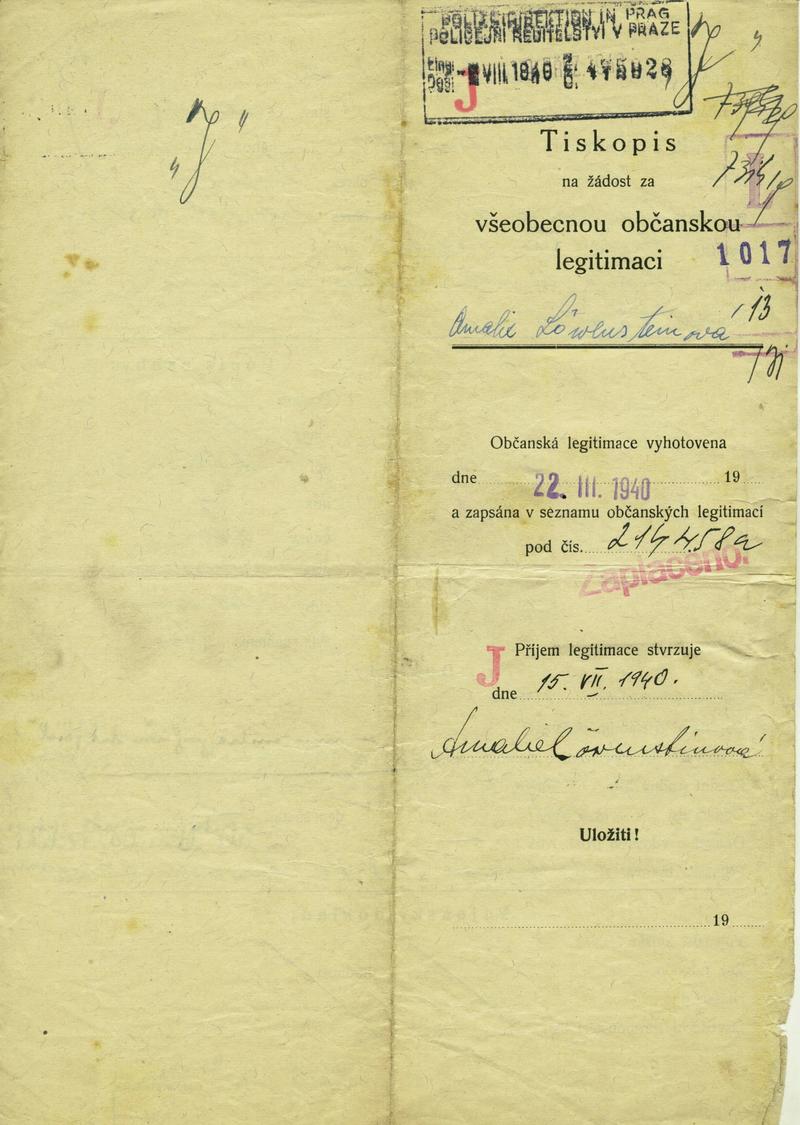 „J"
POLIZEIDIREKTION IN PRAG
POLICEJNÍ ŘEDITELSTVÍ V PRAZE
VIII. 1940
J
J "
Tiskopis
na žádost za
všeobecnou občanskou
legitimaci
1017
Amalie Löwensteinova
13
Občanská legitimace vyhotovena
dne 22. III. 1940 19
a zapsána v seznamu občanských legitimací
pod čís. 214458a
Zaplaceno.
J
Příjem legitimace stvrzuje
dne 15. VII. 1940.
Amalie Löwensteinová
Uložiti!
19